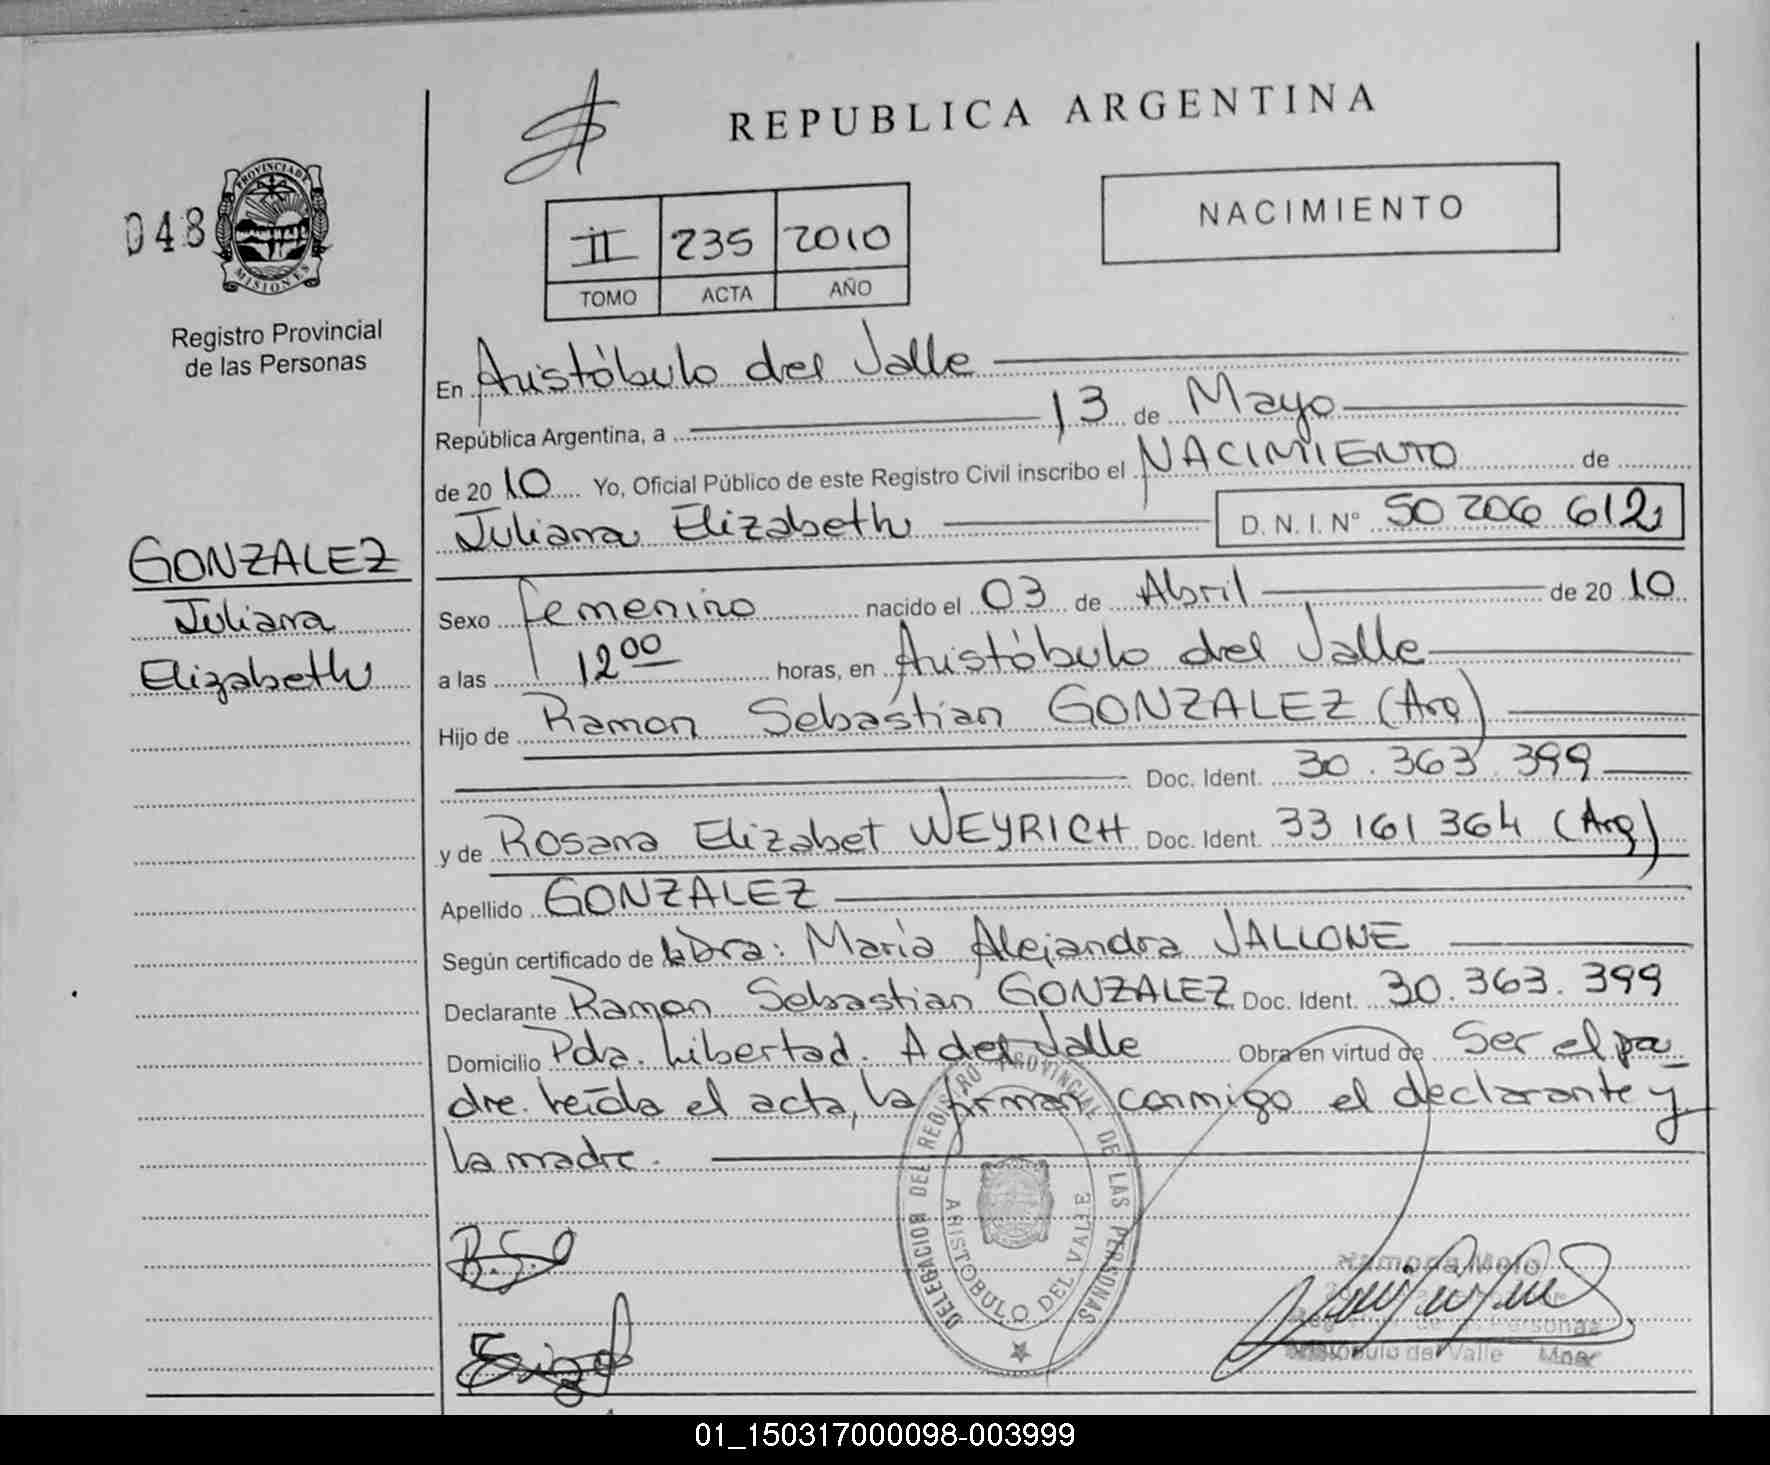 REPUBLICA ARGENTINA
048
PROVINCIA DE MISIONES
Registro Provincial
de las Personas
II 235 2010
TOMO ACTA AÑO
NACIMIENTO
En Aristóbulo del Valle
República Argentina, a 13 de Mayo
de 2010 Yo, Oficial Público de este Registro Civil inscribo el NACIMIENTO de
Juliana Elizabeth D. N. I. N° 50 206 612
GONZALEZ
Juliana
Elizabeth
Sexo femenino nacido el 03 de Abril de 2010
a las 12 00 horas, en Aristóbulo del Valle
Hijo de Ramon Sebastian GONZALEZ (Arg)
Doc. Ident. 30.363.399
y de Rosana Elizabet WEYRICH Doc. Ident. 33 161 364 (Arg)
Apellido GONZALEZ
Según certificado de la Dra: María Alejandra VALLONE
Declarante Ramon Sebastian GONZALEZ Doc. Ident. 30.363.399
Domicilio Pdz. Libertad. A del Valle Obra en virtud de Ser el pa
dre. Leída el acta, la firman conmigo el declarante y
la madre.
DELEGACION DEL REGISTRO PROVINCIAL DE LAS PERSONAS
ARISTOBULO DEL VALLE
R.S.G
Ramona Melo
Personas
Aristóbulo del Valle Mnes
01_150317000098-003999